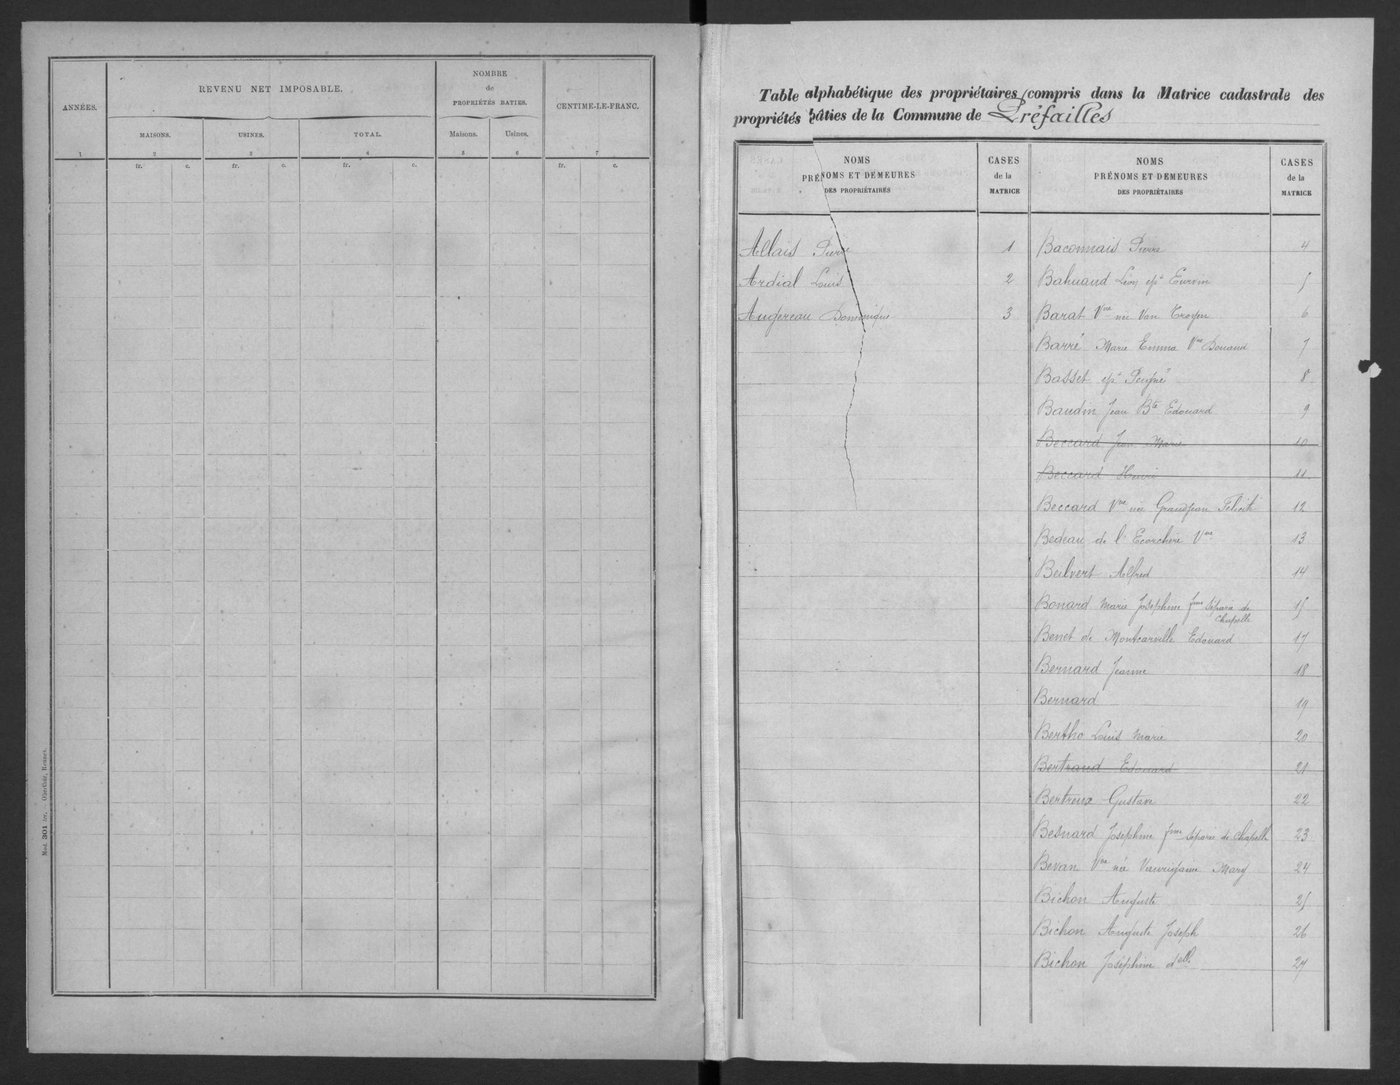 ANNÉES.
REVENU NET IMPOSABLE.
NOMBRE
de
PROPRIÉTÉS BATIES.
CENTIME-LE-FRANC.
MAISONS.
USINES.
TOTAL.
Maisons.
Usines.
1 2 3 4 5 6 7
fr. c. fr. c. fr. c. fr. c.
Mod. 301 ter. - Oberthür, Rennes.
Table alphabétique des propriétaires compris dans la Matrice cadastrale des
propriétés bâties de la Commune de Préfailles
NOMS
PRÉNOMS ET DEMEURES
DES PROPRIÉTAIRES
CASES
de la
MATRICE
Allais Pierre 1
Ardial Louis 2
Augereau Dominique 3
NOMS
PRÉNOMS ET DEMEURES
DES PROPRIÉTAIRES
CASES
de la
MATRICE
Baconnais Pierre 4
Bahuaud Léon 5
Barat Vve née Van Troyen 6
Barré Marie Emma Vve Douaud 7
Basset Peigné 8
Baudin Jean Bte Edouard 9
Beccard Jean Marie 10
Beccard Henri 11
Beccard Vve née Grandjean Félicité 12
Bedeau de l'Ecorchère Vve 13
Beilvert Alfred 14
Bonard Marie Joséphine fme séparée de
Chapelle 15
Benet de Montcarville Edouard 17
Bernard Jeanne 18
Bernard 19
Bertho Louis Marie 20
Bertraud Edouard 21
Bertreux Gustave 22
Besnard Joséphine fme séparée de Chapelle 23
Bevan Vve née Mary 24
Bichon Auguste 25
Bichon Auguste Joseph 26
Bichon Joséphine delle 27